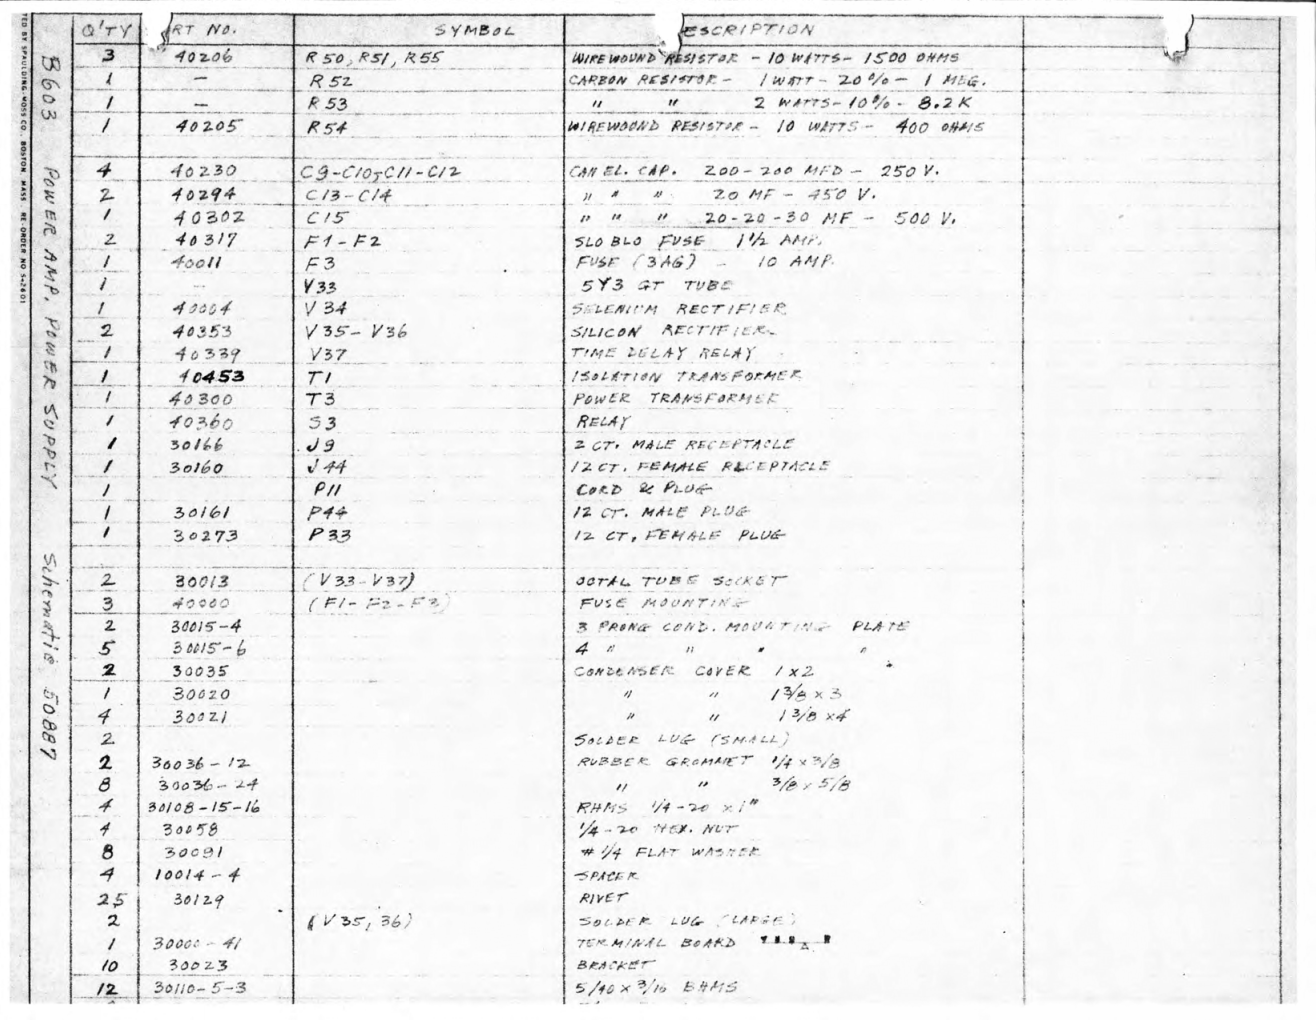 Q'TY RT NO. SYMBOL ESCRIPTION
3 40206 R50, R51, R55 WIREWOUND RESISTOR - 10 WATTS - 1500 OHMS
1 — R52 CARBON RESISTOR - 1 WATT - 20% - 1 MEG.
1 — R53 " " 2 WATTS - 10% - 8.2K
1 40205 R54 WIREWOUND RESISTOR - 10 WATTS - 400 OHMS
4 40230 C9-C10,C11-C12 CAN EL. CAP. 200-200 MFD - 250 V.
2 40294 C13-C14 " " " 20 MF - 450 V.
1 40302 C15 " " " 20-20-30 MF - 500 V.
2 40317 F1-F2 SLO BLO FUSE 1 1/2 AMP.
1 40011 F3 FUSE (3AG) - 10 AMP.
1 — V33 5Y3 GT TUBE
1 40004 V34 SELENIUM RECTIFIER
2 40353 V35-V36 SILICON RECTIFIER
1 40339 V37 TIME DELAY RELAY
1 40453 T1 ISOLATION TRANSFORMER
1 40300 T3 POWER TRANSFORMER
1 40360 S3 RELAY
1 30166 J9 2 CT. MALE RECEPTACLE
1 30160 J44 12 CT. FEMALE RECEPTACLE
1 P11 CORD & PLUG
1 30161 P44 12 CT. MALE PLUG
1 30273 P33 12 CT. FEMALE PLUG
2 30013 (V33-V37) OCTAL TUBE SOCKET
3 40000 (F1-F2-F3) FUSE MOUNTING
2 30015-4 3 PRONG COND. MOUNTING PLATE
5 30015-6 4 " " " "
2 30035 CONDENSER COVER 1 x 2
1 30020 " " 1 3/8 x 3
4 30021 " " 1 3/8 x 4
2 SOLDER LUG (SMALL)
2 30036-12 RUBBER GROMMET 1/4 x 3/8
8 30036-24 " " 3/8 x 5/8
4 30108-15-16 RHMS 1/4-20 x 1"
4 30058 1/4-20 HEX. NUT
8 30091 # 1/4 FLAT WASHER
4 10014-4 SPACER
25 30129 RIVET
2 (V35, 36) SOLDER LUG (LARGE)
1 30000-41 TERMINAL BOARD
10 30023 BRACKET
12 30110-5-3 5/40 x 3/16 BHMS
B603 POWER AMP. POWER SUPPLY Schematic 50887
TED BY SPAULDING-MOSS CO., BOSTON, MASS. RE-ORDER NO 5-2601